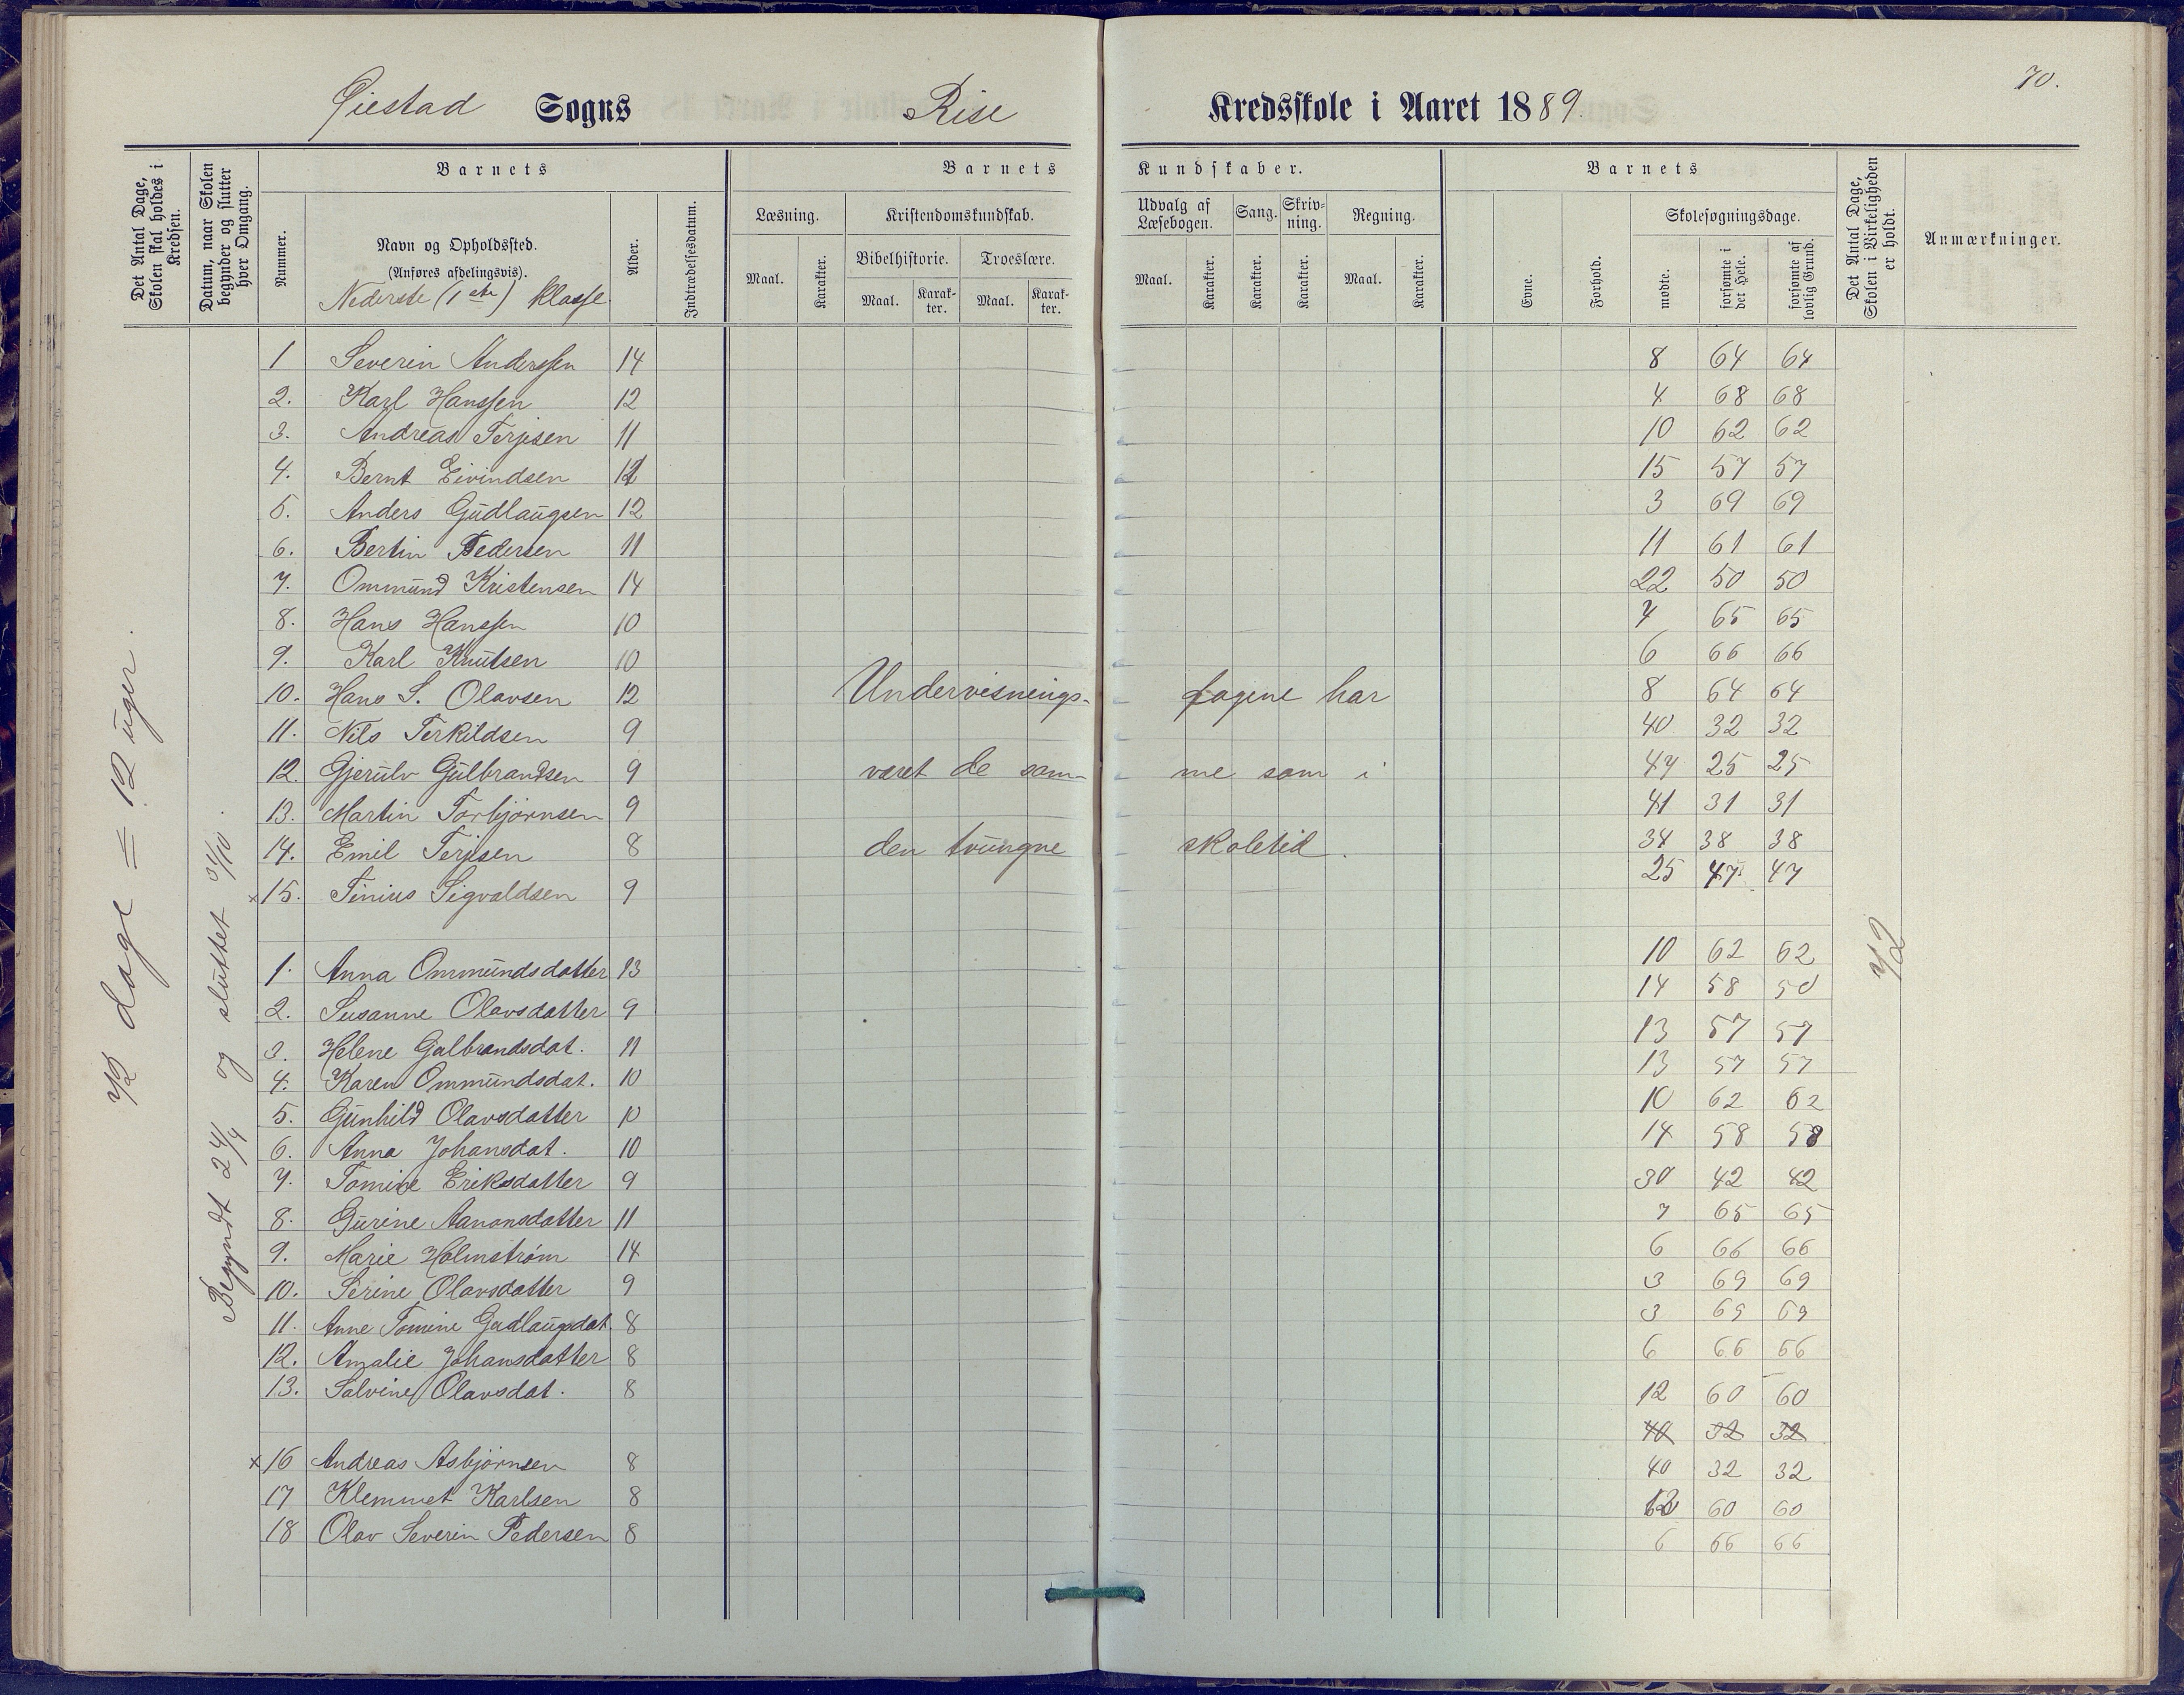 70.
Øiestad Sogns Rise Kredsskole i Aaret 1889.
Det Antal Dage, Skolen skal holdes i Kredsen.
Datum, naar Skolen begynder og slutter hver Omgang.
Barnets
Nummer.
Navn og Opholdssted.
(Anføres afdelingsvis).
Nederste (1ste) klasse
Alder.
Indtrædelsesdatum.
Barnets Kundskaber.
Læsning.
Maal.
Karakter.
Kristendomskundskab.
Bibelhistorie.
Maal.
Karakter.
Troeslære.
Maal.
Karakter.
Udvalg af Læsebogen.
Maal.
Karakter.
Sang.
Karakter.
Skrivning.
Karakter.
Regning.
Maal.
Karakter.
Barnets
Evne.
Forhold.
Skolesøgningsdage.
mødte.
forsømte i det Hele.
forsømte af lovlig Grund.
Det Antal Dage, Skolen i Virkeligheden er holdt.
Anmærkninger.
72 dage = 12 uger.
Begyndt 24/4 og sluttet 31/10.
1 Severin Anderssen 14 8 64 64
2. Karl Hanssen 12 4 68 68
3. Andreas Terjesen 11 10 62 62
4. Bernt Eivindsen 15 57 57
5. Anders Gudlaugsen 12 3 69 69
6. Bertin Pedersen 11 11 61 61
7. Ommund Kristensen 14 22 50 50
8. Hans Hanssen 10 7 65 65
9. Karl Knutsen 10 6 66 66
10. Hans S. Olavsen 12 Undervisnings- fagene har 8 64 64
11. Nils Terkildsen 9 40 32 32
12. Gjerulv Gulbrandsen 9 været de sam- me som i 47 25 25
13. Martin Torbjørnsen 9 41 31 31
14. Emil Terjesen 8 den tvungne skoletid. 34 38 38
x 15. Tinius Sigvaldsen 9 25 47 47
1. Anna Ommundsdatter 13 10 62 62
72
2. Susanne Olavsdatter 9 14 58 58
3. Helene Gulbrandsdat. 11 13 57 57
4. Karen Ommundsdat. 10 13 57 57
5. Gunhild Olavsdatter 10 10 62 62
6. Anna Johansdat. 10 14 58 58
7. Tomine Eriksdatter 9 30 42 42
8. Gurine Aanonsdatter 11 7 65 65
9. Marie Holmstrøm 14 6 66 66
10. Serine Olavsdatter 9 3 69 69
11. Anne Tomine Gudlaugsdat. 8 3 69 69
12. Amalie Johansdatter 8 6 66 66
13. Salvine Olavsdat. 8 12 60 60
40 32 32
x 16 Andreas Asbjørnsen 8 40 32 32
17 Klemmet Karlsen 8 12 60 60
18 Olav Severin Pedersen 8 6 66 66